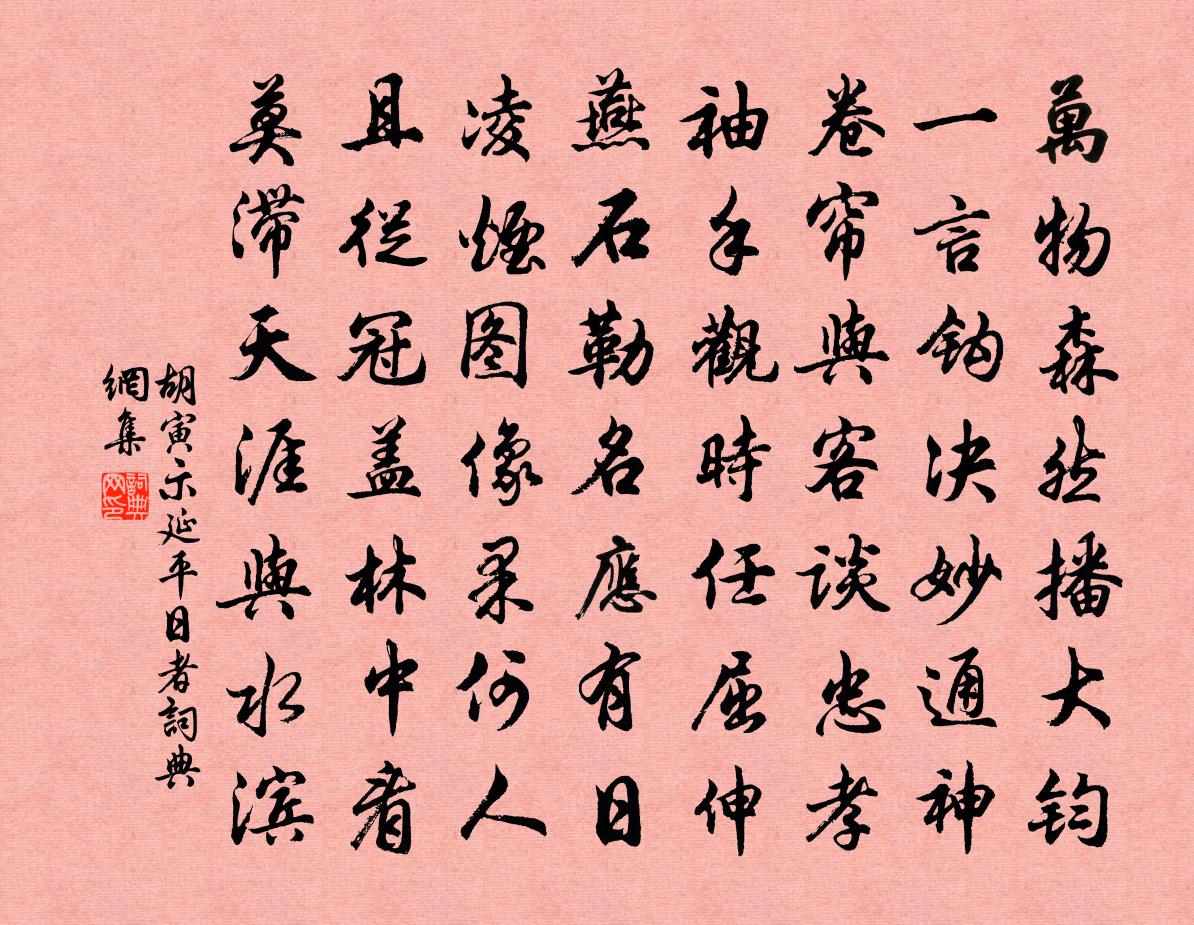 萬物森然播大鈞
一言鈎决妙通神
卷帘與客談忠孝
袖手觀時任屈伸
燕石勒名應有日
凌煙图像果何人
且從冠盖林中看
莫滞天涯與水滨
胡寅示延平日者詞典
網集
詞典網印